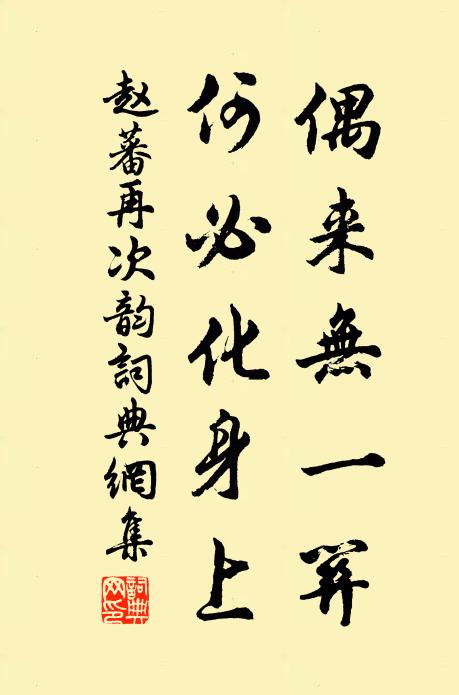 偶来無一
何必化身上
赵蕃再次韵詞典網集
詞典网印